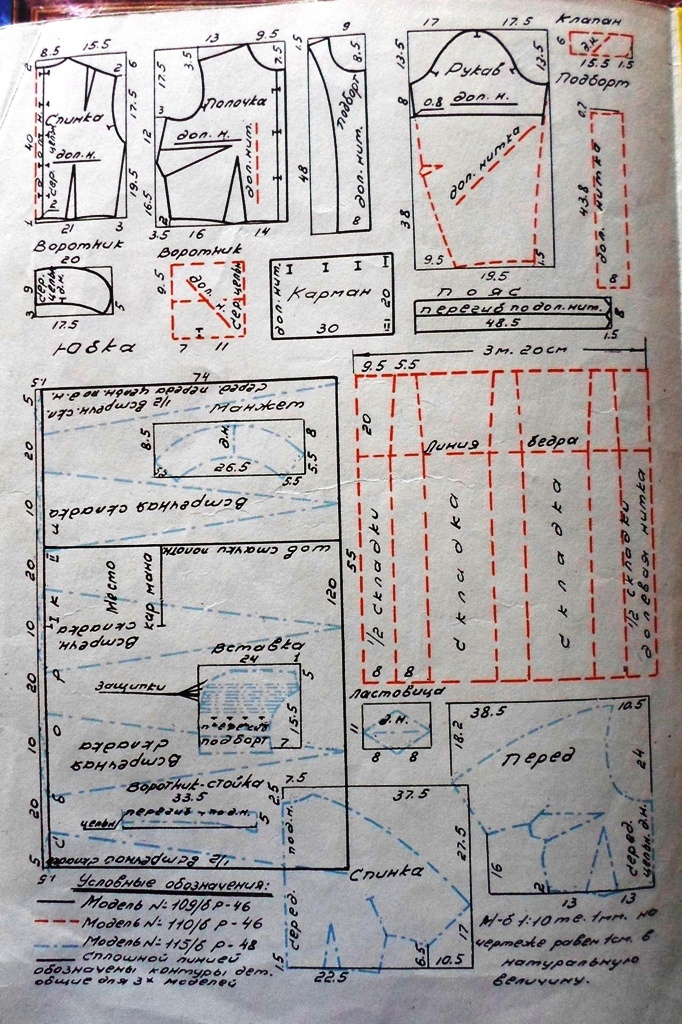 8.5 15.5
2
6
2
Спинка
17.5
40
дол.н.
сер. цельн.
19.5
1
21
3
13 9.5
17.5
7.5
3
Полочка
12
дол. н.
дол. нит.
16.5
2
3.5 16 14
9
1.5
8.5
подборт
дол. нит.
48
8
17 17.5
13.5
13.5
Рукав
8
0.8 дол. н.
дол. нитка
38
9.5
1.5
19.5
Клапан
6
д.н.
15.5 1.5
Подборт
0.7
43.8
дол. нитка
8
Воротник
20
9
сер.
цельн.
д.н.
3
5
17.5
Воротник
9.5
дол. н.
сер. цельн.
7 11
дол. нит.
Карман
20
30
1
Пояс
перегиб по дол. нит.
8
48.5
1.5
Юбка
3м. 20см
9.5 5.5
20
Линия бедра
55
1/2 складки
складка
складка
1/2 складки
долевая нитка
8 8
74
5
серед. переда цельн. по д.н.
1/2 встречн. скл.
20
Манжет
8.5
д.н.
8
26.5
5.5
5.5
5.5
10
Встречная складка
шов стачки полотн.
20
Место
кармана
120
10
Встречн.
складка
Вставка
24 1
5
Защипки
15.5
перегиб
подборт 7
20
10
Встречная
складка
Воротник-стойка
33.5
цельн
перегиб - по д.н.
5
20
5
1.5
Юбка
Ластовица
11
д.н.
8 8
38.5
10.5
18.2
Перед
24
серед.
цельн. д.н.
16
2
13 13
7.5
2.5
37.5
по д.н.
27.5
Спинка
серед.
17
1.5
6.5
22.5
10.5
Условные обозначения:
Модель № 109/б Р-46
Модель № 110/б Р-46
Модель № 115/б Р-48
сплошной линией
обозначены контуры дет.
общие для 3х моделей
М-б 1:10 т.е. 1мм. на
чертеже равен 1см. в
натуральную
величину.